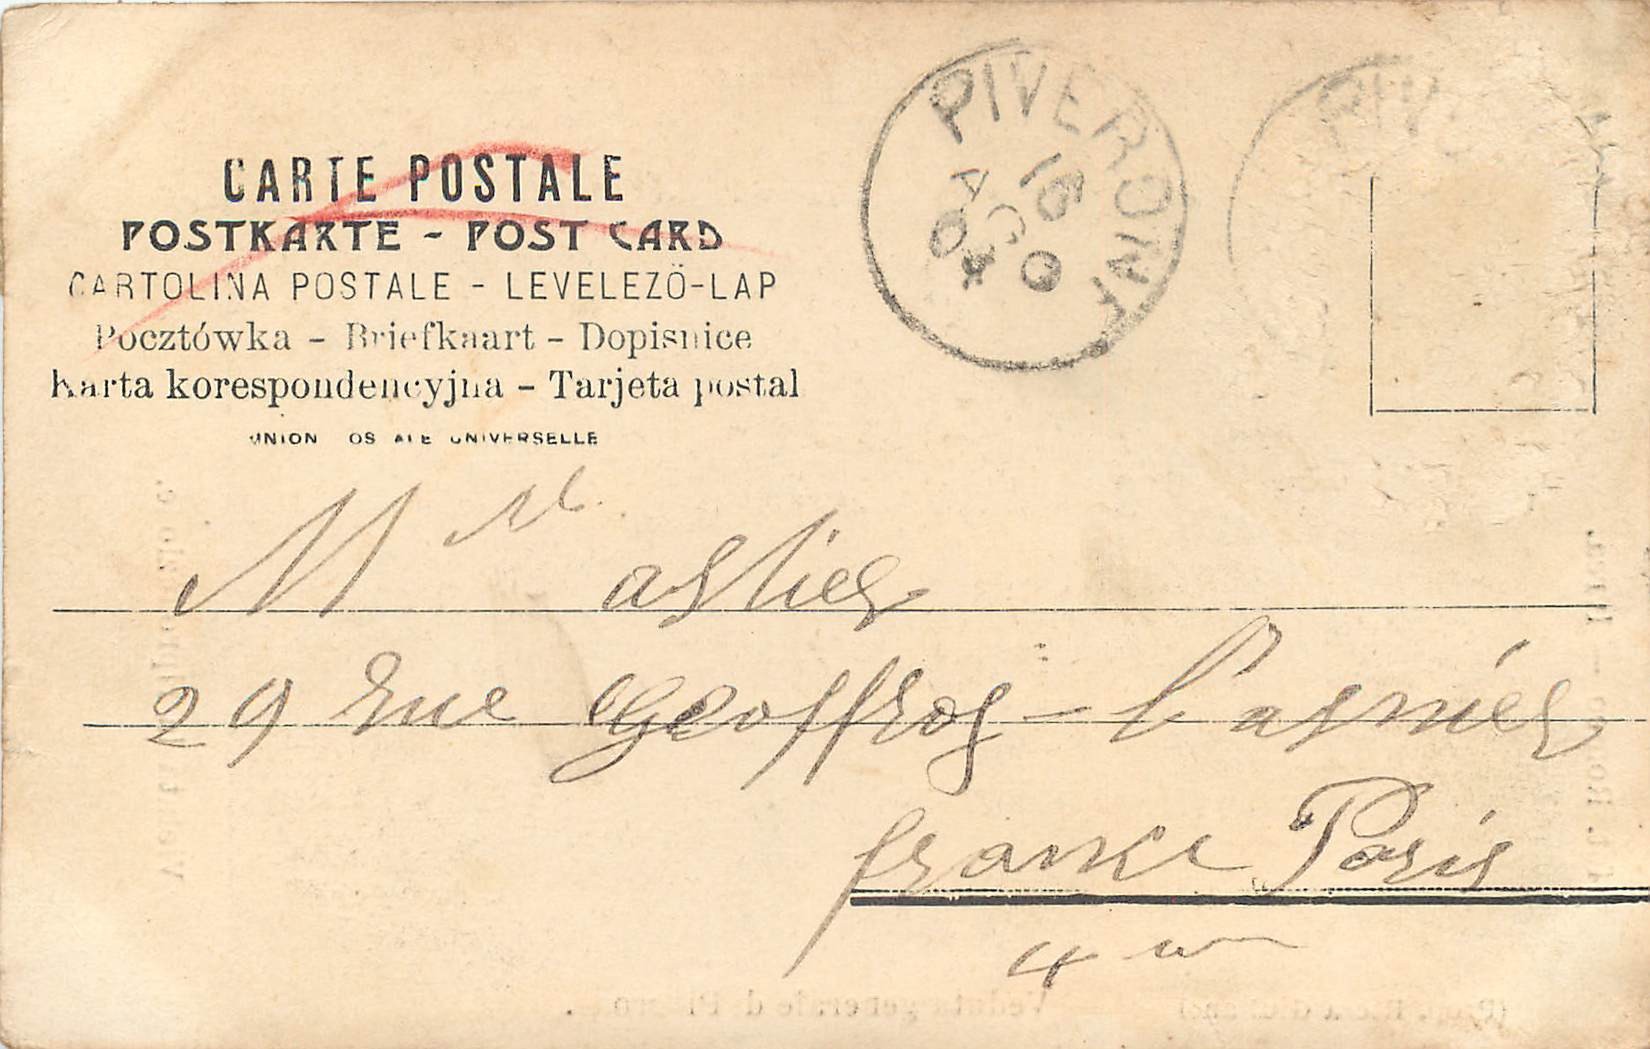 CARTE POSTALE
POSTKARTE - POST CARD
CARTOLINA POSTALE - LEVELEZÖ-LAP
Pocztówka - Briefkaart - Dopisnice
Karta korespondencyjna - Tarjeta postal
UNION POSTALE UNIVERSELLE
PIVERONE
16
AGO
04
PIV
Mlle astier
29 rue Geoffroy - l'asnier
france Paris
4
Veduta generale di Piverone.